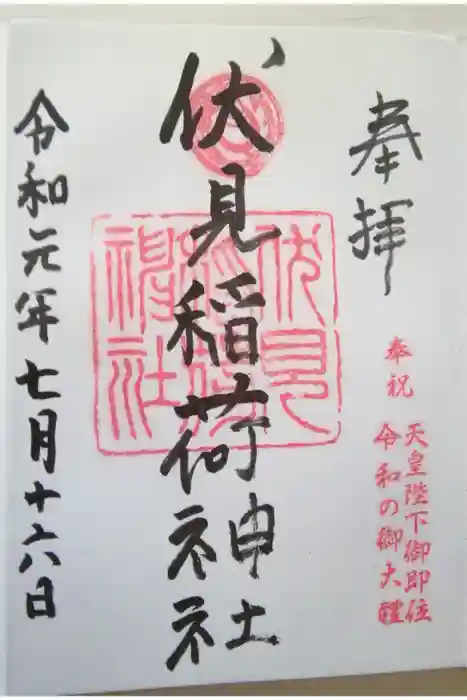 奉拝
奉祝
天皇陛下御即位
令和の御大禮
伏見稲荷神社
伏見稲荷神社
令和元年七月十六日